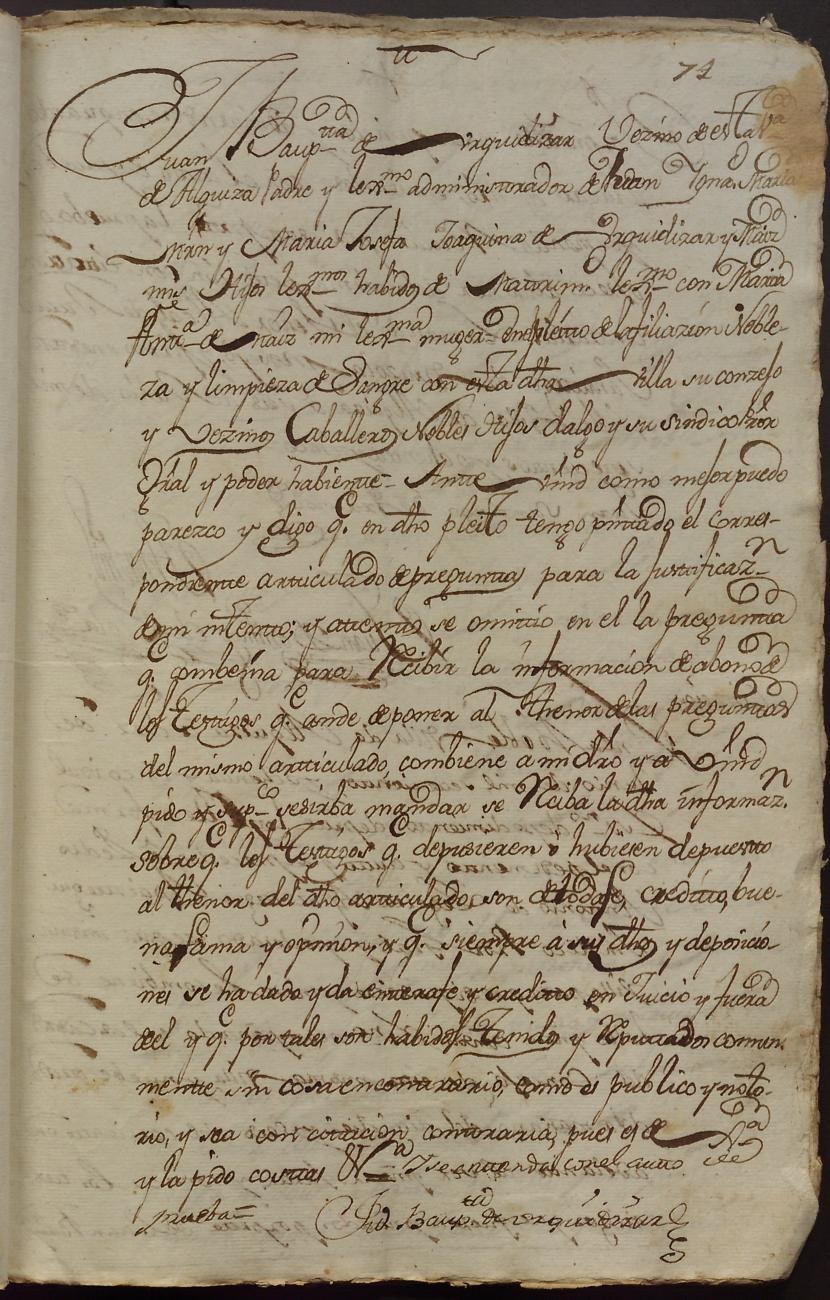 74
Juan Baup.ta de Vrquidizar Vezino de esta V.a
de Alquiza Padre y lex.mo administrador de Juan Ygna.o Maria
Mrn y Maria Josefa Joaquina de Vrquidizar y
mis Hijos lex.mos habidos de Matrim.o lex.mo con Maria
Ant.a de mi lex.ma muger en el pleito de la filiazion Noble-
za y limpieza de Sangre con esta dha Villa su conzejo
y Vezinos Caballeros Nobles Hijos dalgo y su sindico Pror
Gral y poder habiente Ante Vmd como mejor puedo
parezco y digo q.e en dho pleito tengo pntado el corres-
pondiente articulado de preguntas para la justificaz.n
de mi intento; y atento se omitio en el la pregunta
q.e combenia para Recibir la informacion de abono de
los Testigos q.e ande deponer al thenor de las preguntas
del mismo articulado, combiene a mi dro y á Vmd
pido y sup.co se sirba mandar se Reciba la dha informaz.n
sobre q.e los Testigos q.e depusieren ó hubiesen depuesto
al thenor del dho articulado, son de toda fe, credito, bue-
na fama y opinion, y q.e siempre á sus dhos y deposicio-
nes se ha dado y da entera fe y credito en Juicio y fuera
del y q.e por tales son habidos, tenidos y Reputados comun-
mente sin cosa en contrario, como es publico y noto-
rio, y sea con citacion contraria, pues es de
y la pido costas &.a Y se entienda con el auto de
prueba=
Jn Baup.ta de vrquidizar